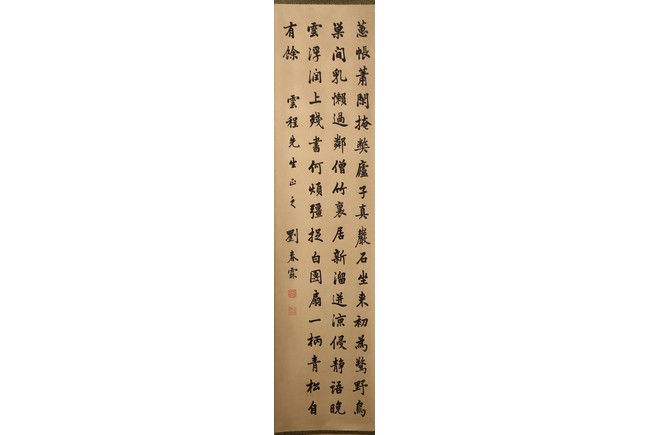 蕙帳蕭閑掩獘廬子真巖石坐來初為驚野鳥
巢間乳懶過鄰僧竹裏居新溜迸涼侵靜語晚
雲浮潤上殘書何煩彊捉白團扇一柄青松自
有餘 雲程先生正之 劉春霖